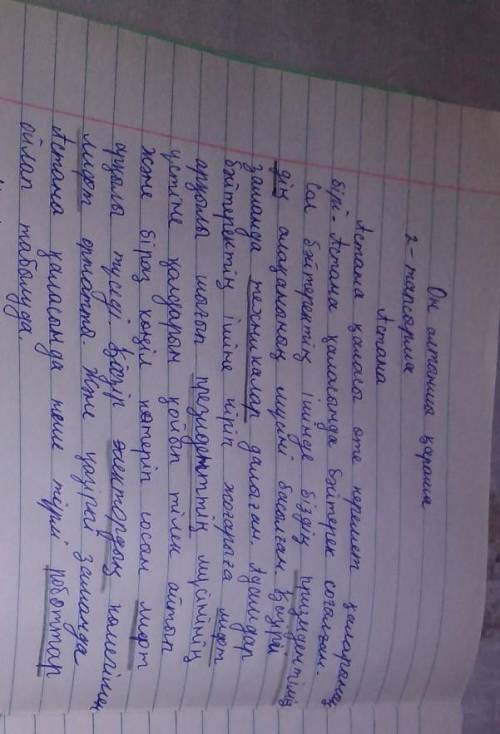 Он алтыншы қараша
2-тапсырма
Астана
Астана қаласы өте керемет қаларының
бірі-Астана қаласында бәйтерек соғылған.
Сол бәйтеректің ішінде біздің призиденттің
дің алақанының мүсіні басылған. Қазіргі
заманда механикалар дамыған. Адамдар
бәйтеректің ішіне кіріп жоғарыға лифт
арқылы шығып президенттің мүсінінің
үстіне қолдарын қойып тілек айтып
және біраз көңіл көтеріп сосын лифт
арқылы түседі. Қазір электордың көмегімен
лифт орнатты. Және қазіргі заманда
Астана қаласында неше түрлі роботтар
ойлап табылуда.